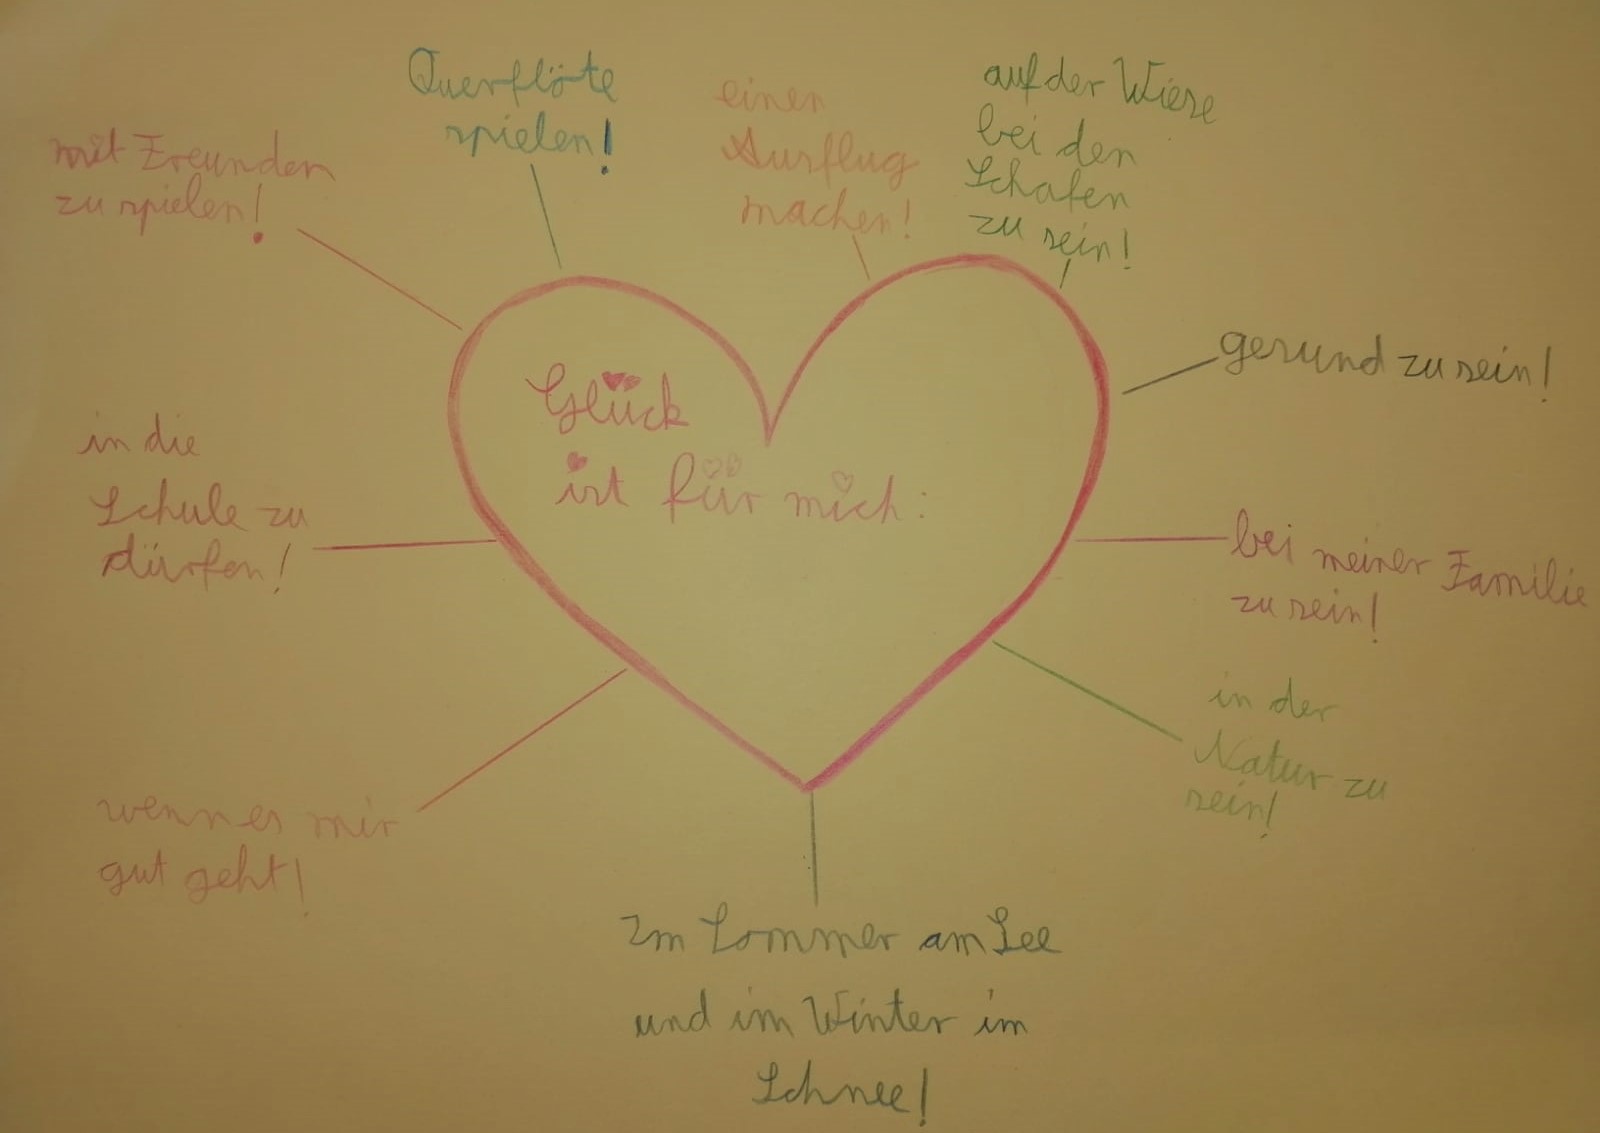 Glück
ist für mich:
mit Freunden
zu spielen!
Querflöte
spielen!
einen
Ausflug
machen!
auf der Wiese
bei den
Schafen
zu sein!
gesund zu sein!
bei meiner Familie
zu sein!
in der
Natur zu
sein!
Im Sommer am See
und im Winter im
Schnee!
wenn es mir
gut geht!
in die
Schule zu
dürfen!